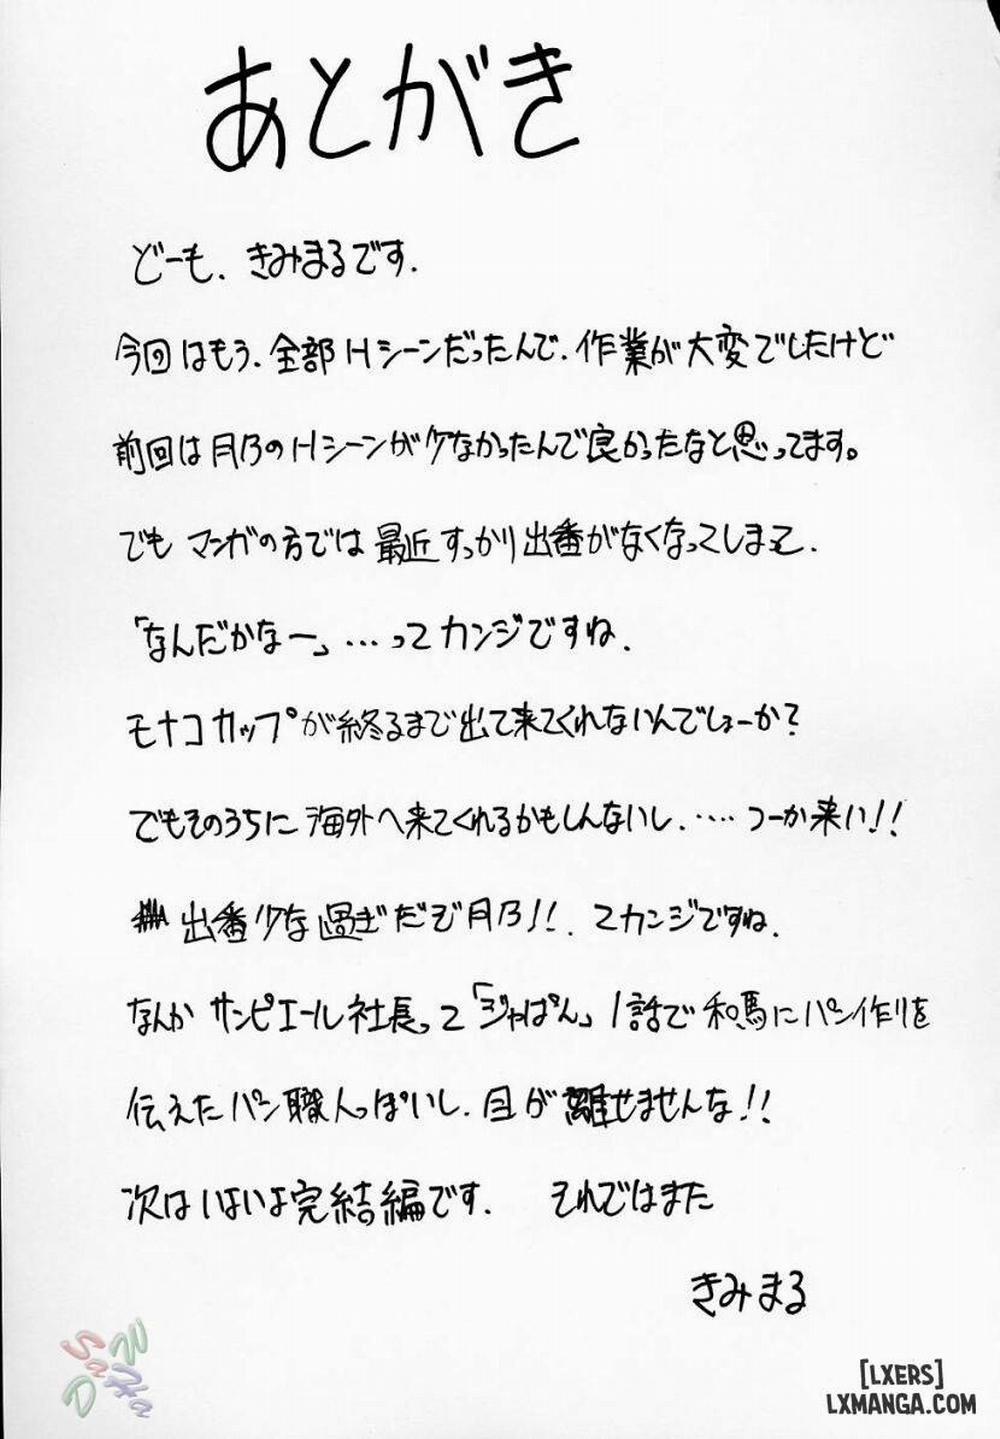 あとがき
どーも、きみまるです.
今回はもう、全部Hシーンだったんで、作業が大変でしたけど
前回は月乃のHシーンが少なかったんで良かったなと思ってます。
でもマンガの方では最近すっかり出番がなくなってしまって.
「なんだかなー」…ってカンジですね.
モナコカップが終るまで出て来てくれないんでしょーか?
でもそのうちに海外へ来てくれるかもしんないし.….つーか来い!!
出番少な過ぎだぞ月乃!!.てカンジですね.
なんかサンピエール社長って「ジャぱん」1話で和馬にパン作りを
伝えたパン職人っぽいし.目が離せませんな!!
次はいよいよ完結編です. それではまた
きみまる
SaWN
DaHa
[LXERS]
LXMANGA.COM